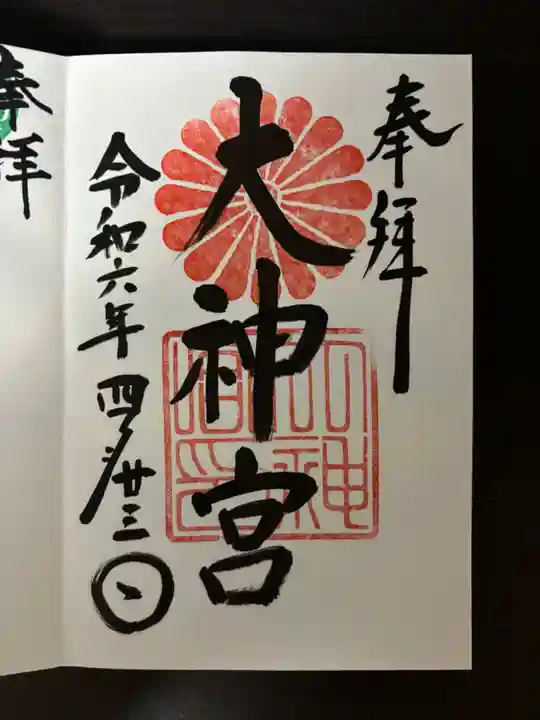 奉拝
大神宮
令和六年四月廿三日
奉拝